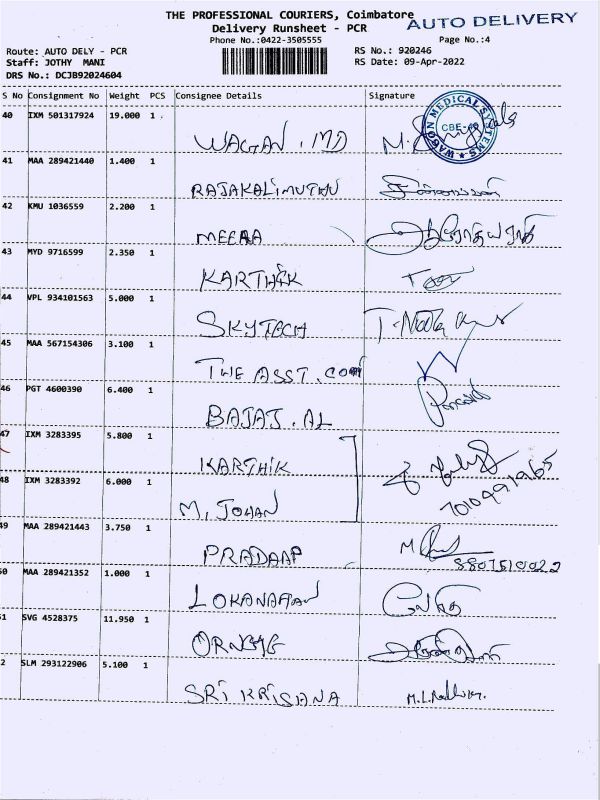 THE PROFESSIONAL COURIERS, Coimbatore
AUTO DELIVERY
Delivery Runsheet - PCR
Phone No.:0422-3505555
Page No.:4
Route: AUTO DELY - PCR
RS No.: 920246
Staff: JOTHY MANI
RS Date: 09-Apr-2022
DRS No.: DCJB92024604
S No Consignment No Weight PCS Consignee Details Signature
40 IXM 501317924 19.000 1
WAGAN . MD
WAGON MEDICAL SYSTEMS
41 MAA 289421440 1.400 1
RAJAKALIMUTHU
42 KMU 1036559 2.200 1
MEERA
43 MYD 9716599 2.350 1
KARTHIK
44 VPL 934101563 5.000 1
SKYTECH
45 MAA 567154306 3.100 1
THE ASST . COM
46 PGT 4600390 6.400 1
BAJAJ . AL
47 IXM 3283395 5.800 1
KARTHIK
48 IXM 3283392 6.000 1
M. JOHAN
49 MAA 289421443 3.750 1
PRADAAP
0 MAA 289421352 1.000 1
LOKANATAN
1 SVG 4528375 11.950 1
2 SLM 293122906 5.100 1
SRI KRISHNA